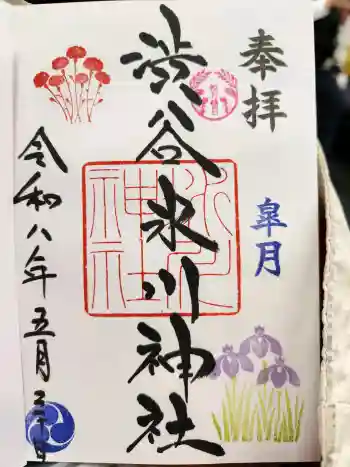 奉拝
皐月
渋谷氷川神社
氷川
神社
令和八年五月三十日